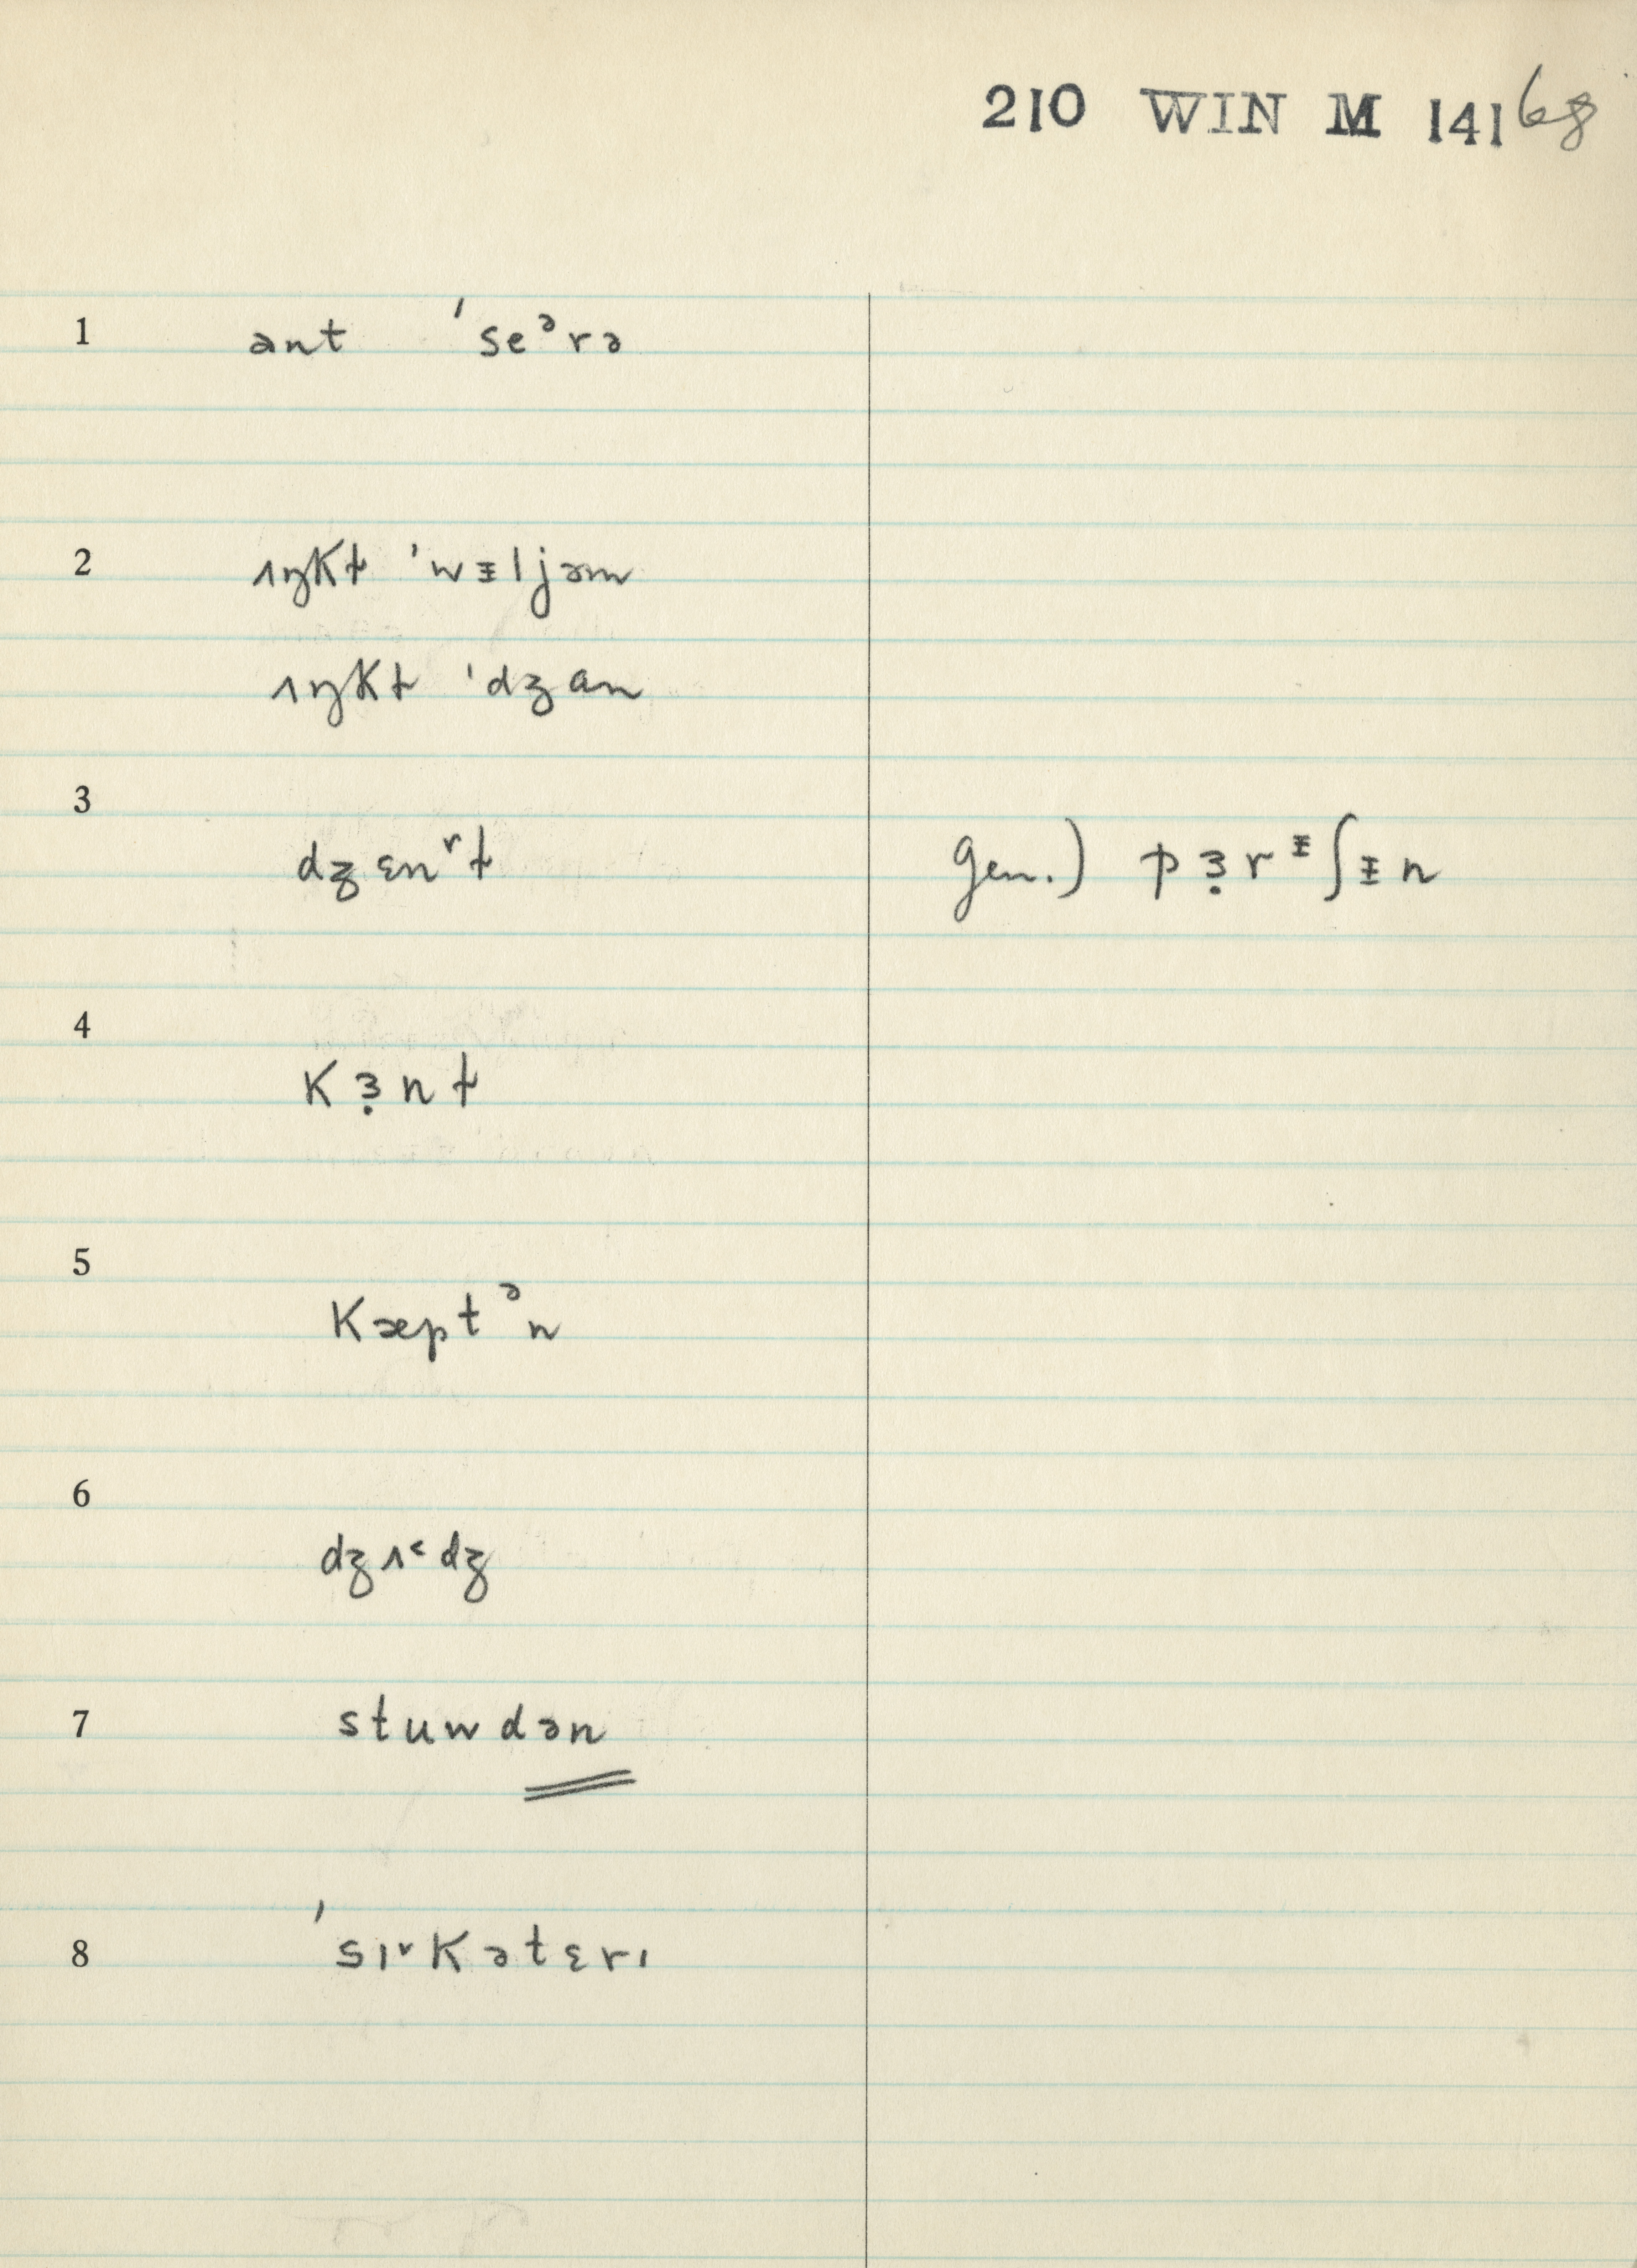 210 WIN M 141 68
1 ant ˈseᵊrə
2 ʌŋkƚ ˈwᵻljəm
ʌŋkƚ ˈdʒan
3 dʒɛn˅ƚ gen.) pɜ̣rᵻʃᵻn
4 kɜ̣nƚ
5 kæptᵊn
6 dʒʌ˂dʒ
7 stuwdən
8 ˈsɪ˅kətɛrɪ